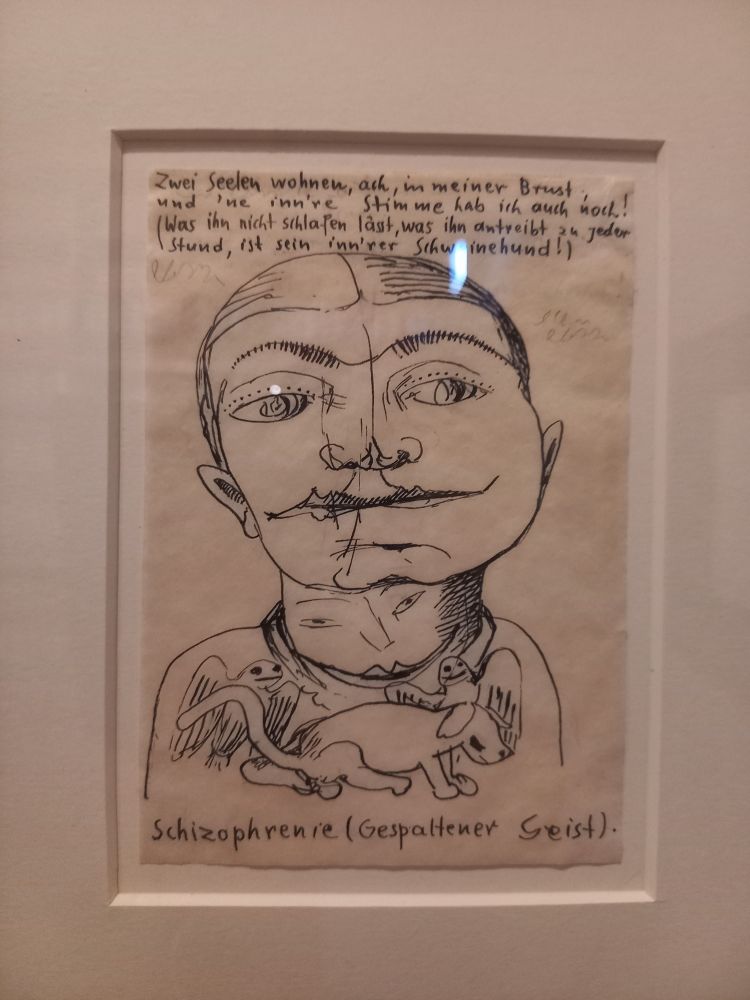 Zwei Seelen wohnen, ach, in meiner Brust
und 'ne inn're Stimme hab ich auch noch!
(Was ihn nicht schlafen lässt, was ihn antreibt zu jeder
Stund, ist sein inn'rer Schweinehund!)
Schizophrenie (Gespaltener Geist).